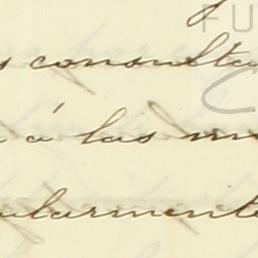 s consulta
á las
ularmente